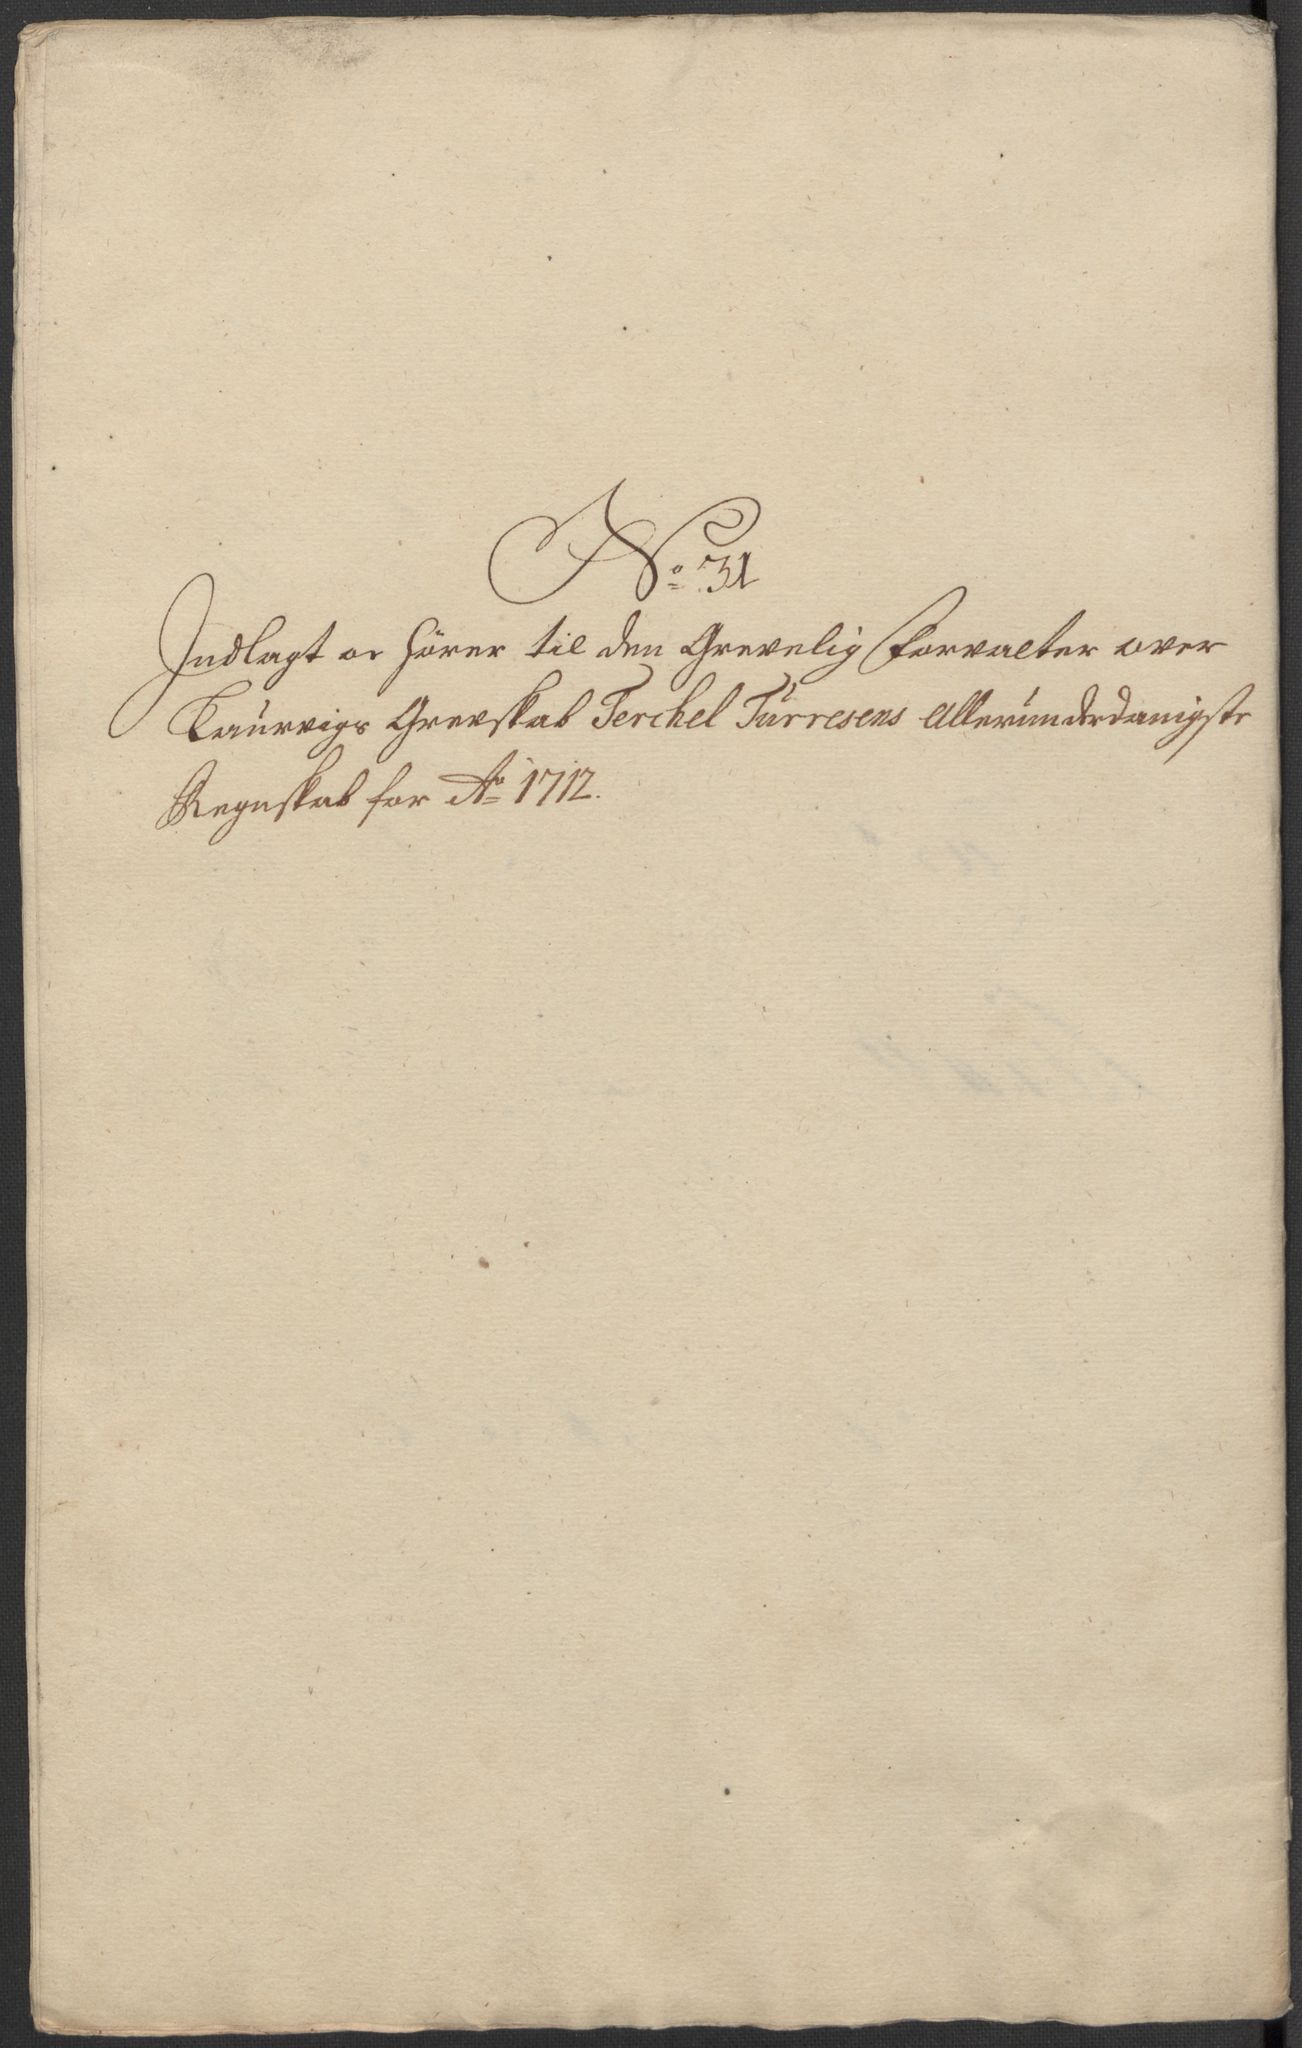 No 31
Indlagt oc hörer til den Grevelig Forvalter over
Laurvigs Grevskab Terchel Turresens allerunderdanigste
Regnskab for Ao 1712.